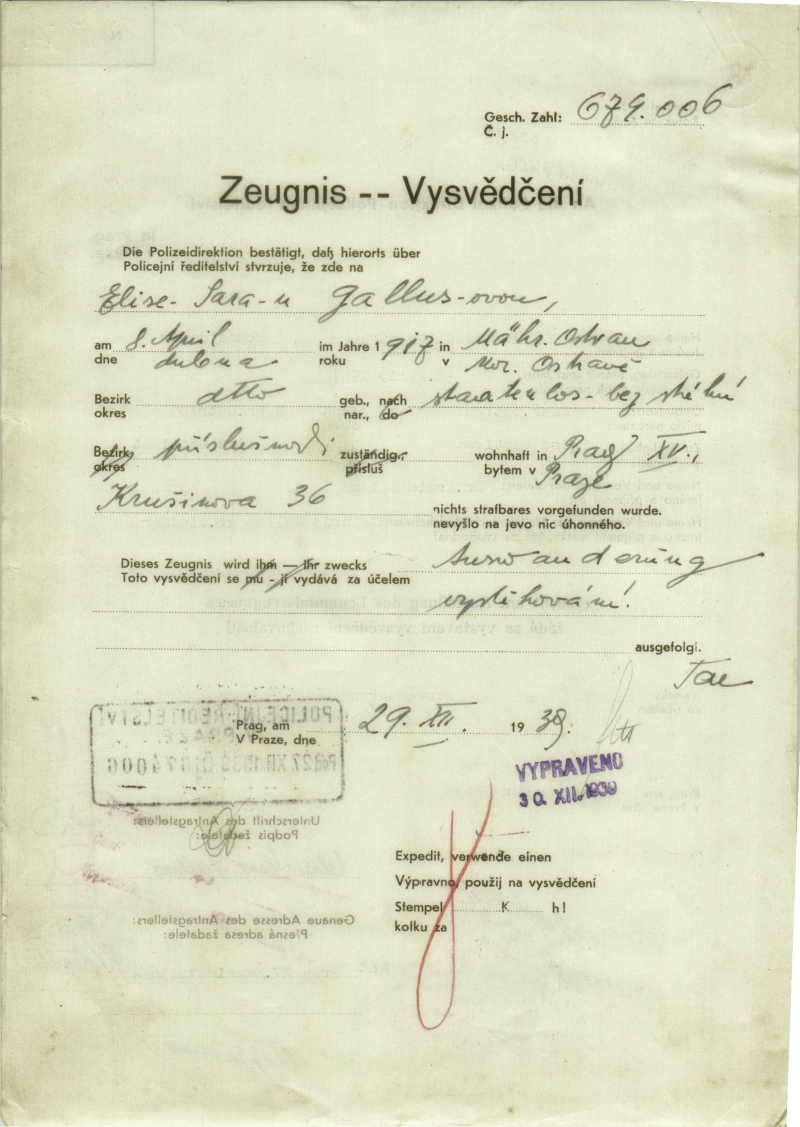 Gesch. Zahl: 679.006
Č. j.
Zeugnis -- Vysvědčení
Die Polizeidirektion bestätigt, daß hierorts über
Policejní ředitelství stvrzuje, že zde na
Elise-Sara-u Gallus-ovou,
am 8. April im Jahre 1917 in Mähr. Ostrau
dne dubna roku v Mor. Ostravě
Bezirk dtto geb., nach staatenlos - bez státní
okres nar., do
Bezirk, příslušnosti zuständig, wohnhaft in Prag XV.,
okres přísluš bytem v Praze
Krušinova 36 nichts strafbares vorgefunden wurde.
nevyšlo na jevo nic úhonného.
Dieses Zeugnis wird ihm — ihr zwecks Auswanderung
Toto vysvědčení se mu - jí vydává za účelem
vystěhování.
ausgefolgt.
POLICEJNÍ ŘEDITELSTVÍ
Prag, am 29. XII. 1939.
V Praze, dne
VYPRAVENO
30. XII. 1939
Unterschrift des Antragstellers:
Podpis žadatele:
Expedit, verwende einen
Výpravno, použij na vysvědčení
Stempel K h!
kolku za
Genaue Adresse des Antragstellers:
Přesná adresa žadatele: